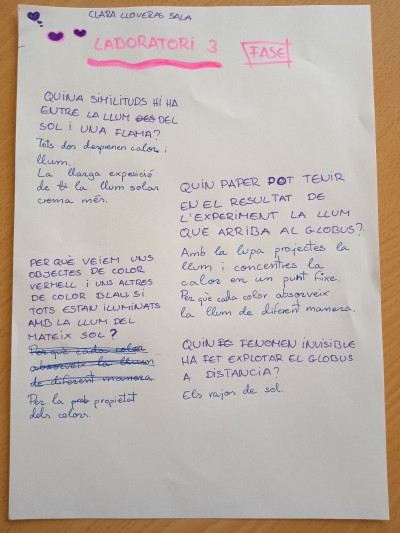 CLARA LLOVERAS SALA
LABORATORI 3
FASE 1
QUINA SIMILITUDS HI HA
ENTRE LA LLUM DEL
SOL I UNA FLAMA?
Tots dos desprenen calor i
llum.
La llarga exposició
de la llum solar
crema més.
PER QUÈ VEIEM UNS
OBJECTES DE COLOR
VERMELL I UNS ALTRES
DE COLOR BLAU, SI
TOTS ESTAN IL·LUMINATS
AMB LA LLUM DEL
MATEIX SOL?
Perquè cada color
absorveix la llum
de diferent manera
Per la propietat
dels colors.
QUIN PAPER POT TENIR
EN EL RESULTAT DE
L'EXPERIMENT LA LLUM
QUE ARRIBA AL GLOBUS?
Amb la lupa projectes la
llum i concentres la
calor en un punt fixe.
Perquè cada color absorveix
la llum de diferent manera.
QUIN FENOMEN INVISIBLE
HA FET EXPLOTAR EL GLOBUS
A DISTANCIA?
Els rajos de sol.